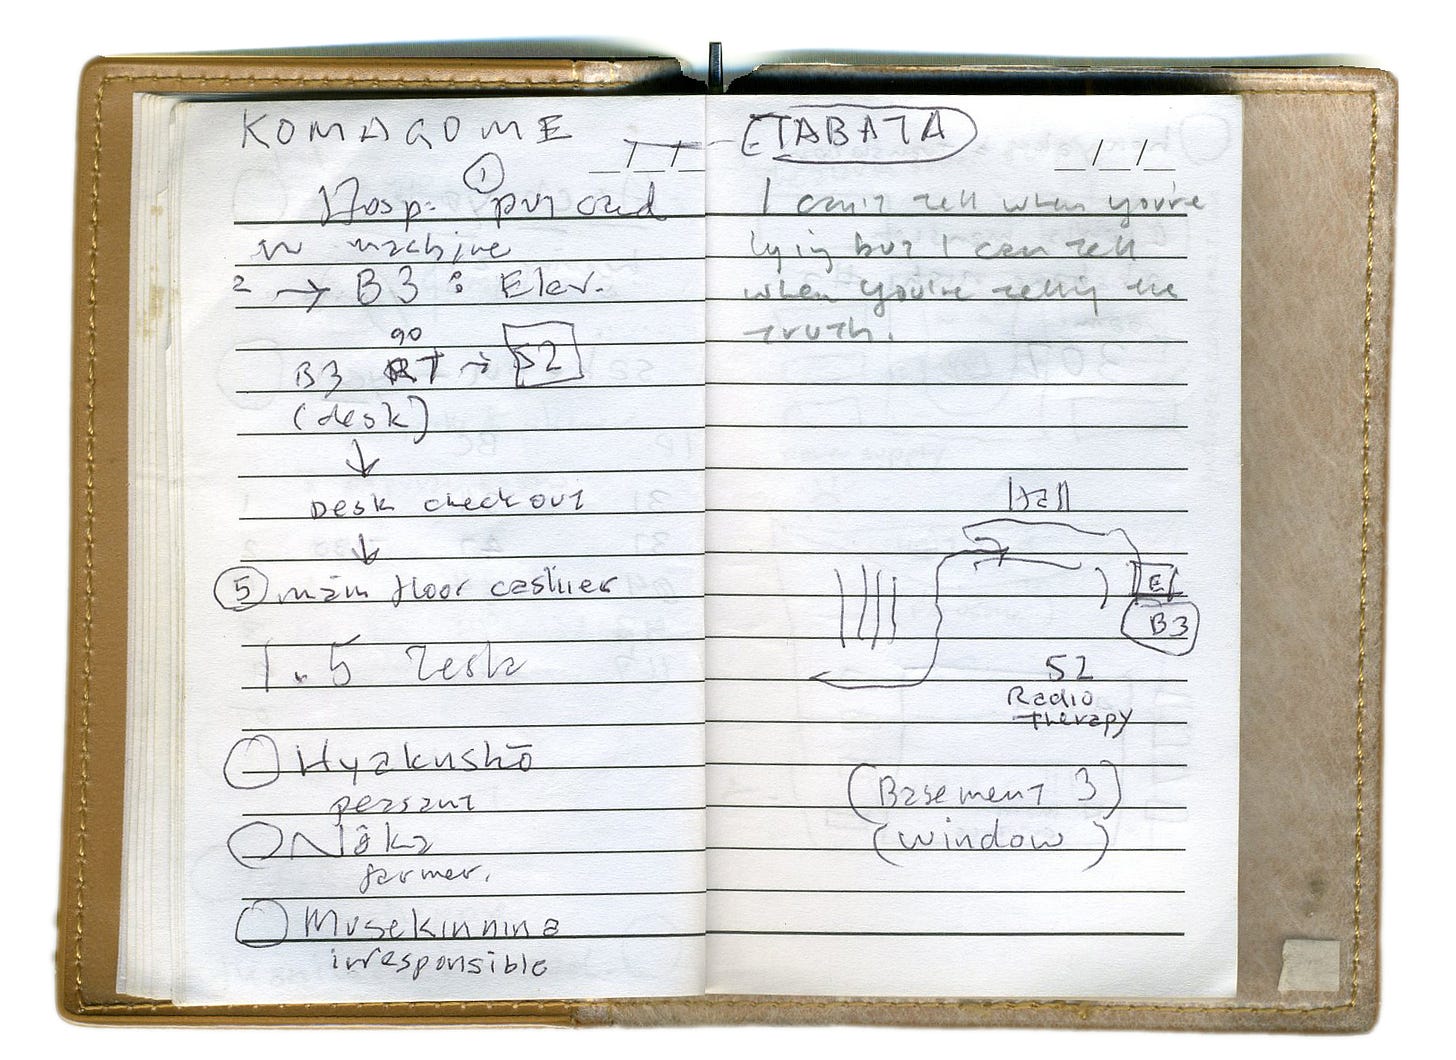 KOMAGOME
1
Hosp. put card
in machine
2 → B3 : Elev.
go
B3 RT → 52
(desk)
↓
Desk checkout
↓
5 main floor cashier
1.5 Tesla
Hyakushō
peasant
Nōka
farmer.
Musekinnina
irresponsible
TABATA
I can't tell when you're
lying but I can tell
when you're telling the
truth.
Hall
E
B3
52
Radio
therapy
(Basement 3)
(window)